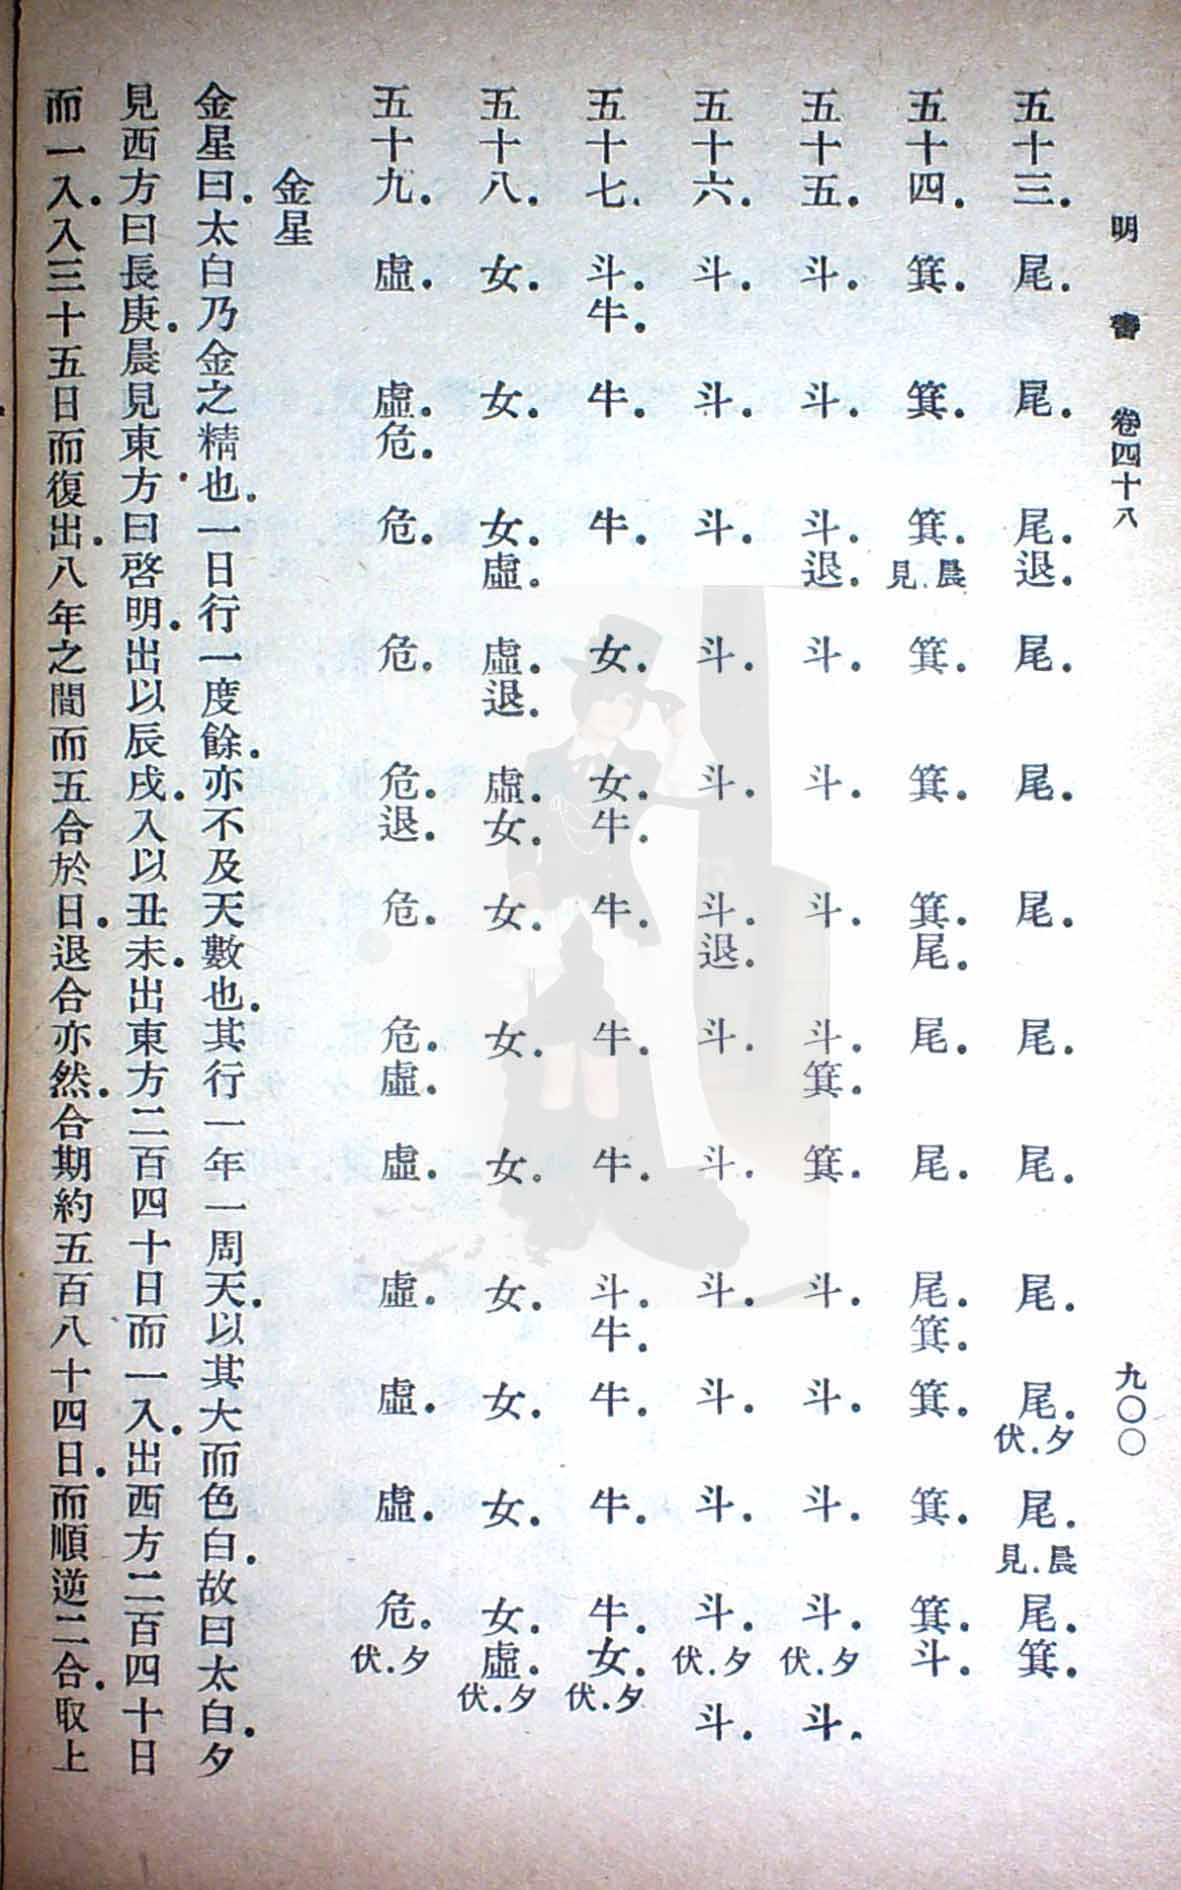 明書 卷四十八 九〇〇
五十三．尾．尾．尾．退．尾．尾．尾．尾．尾．尾．尾．夕．伏 尾．晨．見 尾．箕．
五十四．箕．箕．箕．晨．見 箕．箕．箕．尾．尾．尾．尾．箕．箕．箕．箕．斗．
五十五．斗．斗．斗．退．斗．斗．斗．斗．箕．箕．斗．斗．斗．斗．夕．伏 斗．
五十六．斗．斗．斗．斗．斗．斗．退．斗．斗．斗．斗．斗．斗．夕．伏 斗．
五十七．斗．牛．牛．牛．女．女．牛．牛．牛．牛．斗．牛．牛．牛．牛．女．夕．伏
五十八．女．女．女．虛．虛．退．虛．女．女．女．女．女．女．女．女．虛．夕．伏
五十九．虛．虛．危．危．危．危．退．危．危．虛．虛．虛．虛．虛．危．夕．伏
金星
金星曰．太白乃金之精也．一日行一度餘．亦不及天數也．其行一年一周天．以其大而色白．故曰太白．夕
見西方曰長庚．晨見東方．曰啓明．出以辰戌．入以丑未．出東方二百四十日而一入．出西方二百四十日
而一入．入三十五日而復出．八年之間而五合於日．退合亦然．合期約五百八十四日．而順逆二合．取上